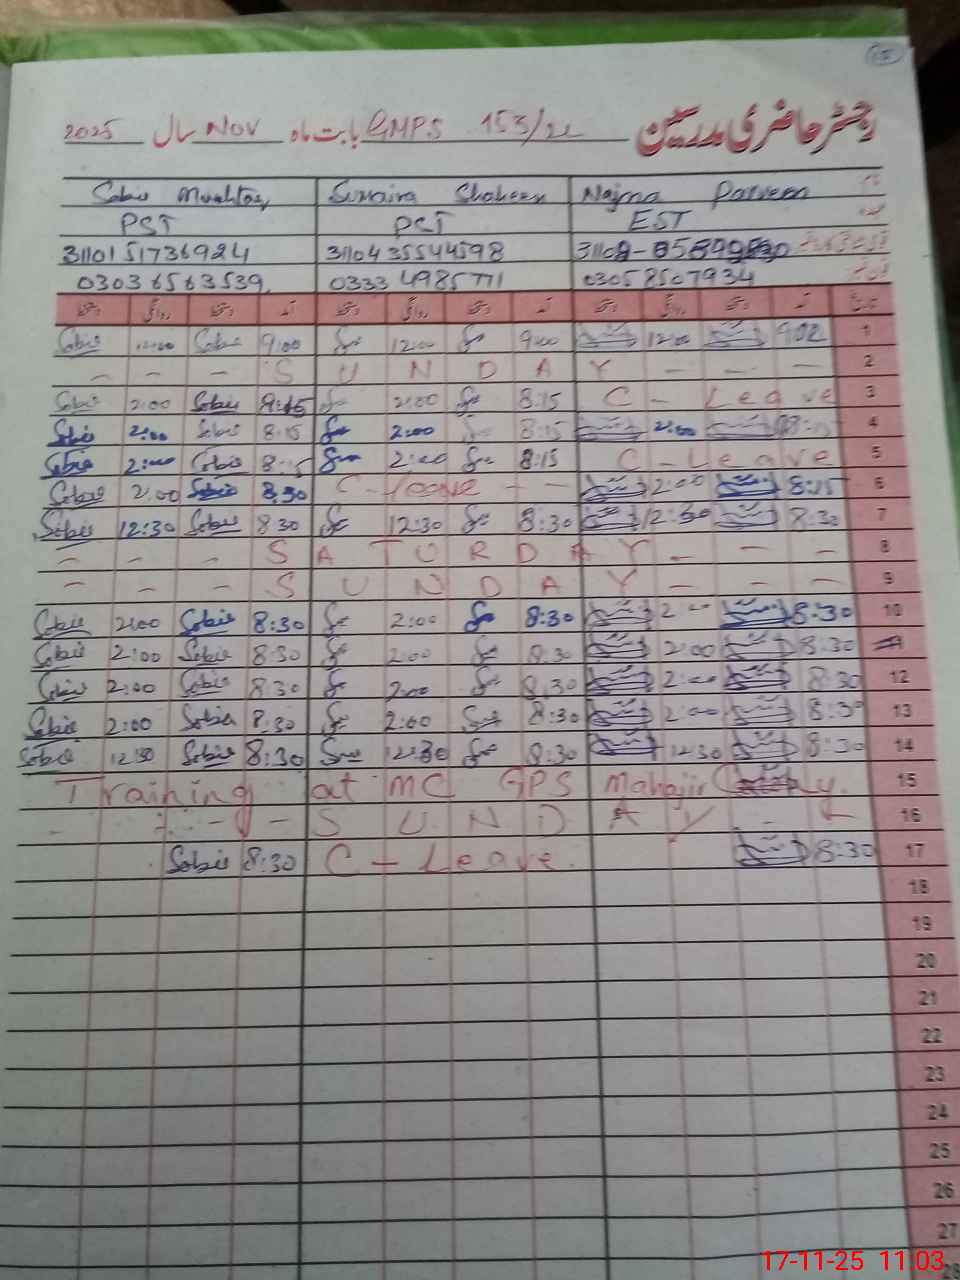 15
رجسٹر حاضری مدرسین GMPS 153/2L بابت ماہ NOV سال 2025
Sobia Mushtaq Sumaira Shaheen Najma Parveen نام
PST PST EST عہدہ
3110151736924 3110435544598
03036563539 03334985771 03058507934 فون نمبر
دستخط روانگی دستخط آمد دستخط روانگی دستخط آمد دستخط روانگی دستخط آمد تاریخ
Sobia 12:00 Sobia 9:00 Su 12:00 Su 9:00 12:00 9:02 1
- - - S U N D A Y - - - 2
Sobia 2:00 Sobia 8:15 Su 2:00 Su 8:15 C - Leave 3
Sobia 2:00 Sobia 8:15 Su 2:00 Su 8:15 2:00 4
Sobia 2:00 Sobia 8:15 Su 2:00 Su 8:15 C - Leave 5
Sobia 2:00 Sobia 8:30 C - leave - - 2:00 8:15 6
Sobia 12:30 Sobia 8:30 Su 12:30 Su 8:30 12:30 8:30 7
- - - S A T U R D A Y - - - 8
- - - S U N D A Y - - - 9
Sobia 2:00 Sobia 8:30 Su 2:00 Su 8:30 2:00 8:30 10
Sobia 2:00 Sobia 8:30 Su 2:00 Su 8:30 2:00 8:30
Sobia 2:00 Sobia 8:30 Su 2:00 Su 8:30 2:00 8:30 12
Sobia 2:00 Sobia 8:30 Su 2:00 Su 8:30 2:00 8:30 13
Sobia 12:30 Sobia 8:30 Su 12:30 Su 8:30 12:30 8:30 14
Training at MC GPS Mahajir 15
- - - S U N D A Y - - 16
Sobia 8:30 C - Leave. 8:30 17
18
19
20
21
22
23
24
25
26
27
28
17-11-25 11:03